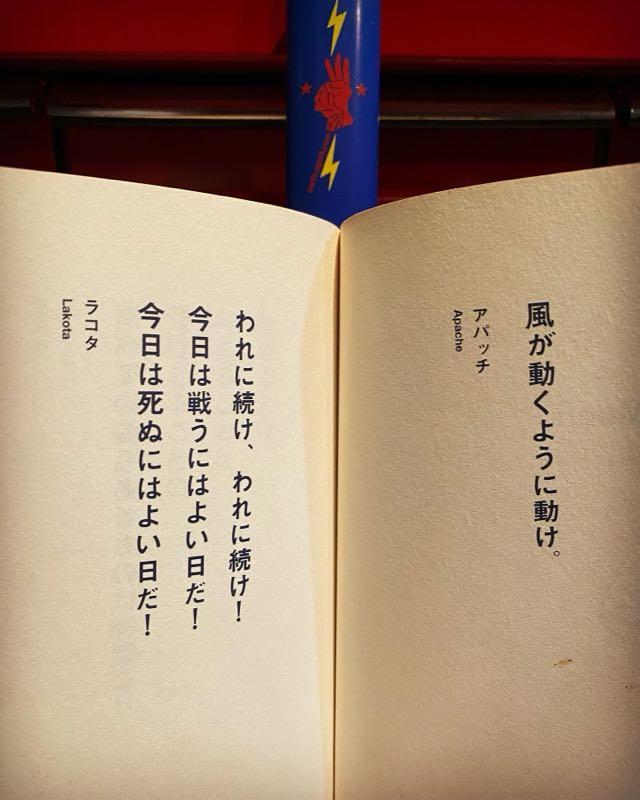 風が動くように動け。
アパッチ
Apache
われに続け、われに続け！
今日は戦うにはよい日だ！
今日は死ぬにはよい日だ！
ラコタ
Lakota